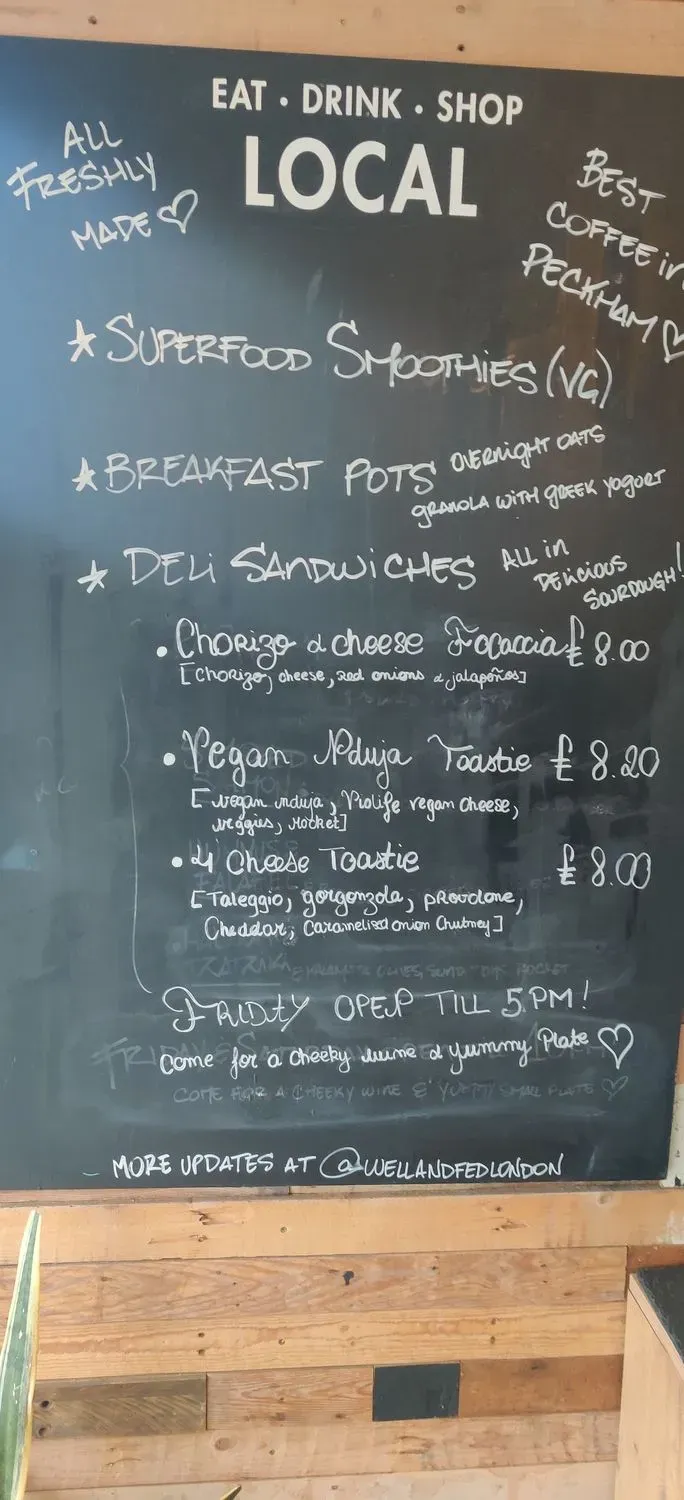 EAT · DRINK · SHOP
LOCAL
ALL
FRESHLY
MADE ♡
BEST
COFFEE in
PECKHAM ♡
★ SUPERFOOD SMOOTHIES (VG)
★ BREAKFAST POTS OVERNIGHT OATS
GRANOLA WITH GREEK YOGURT
★ DELi SANDWiCHES ALL in
DELICIOUS
SOURDOUGH!
• Chorizo & cheese Focaccia £ 8.00
[Chorizo, cheese, red onions & jalapeños]
• Vegan Nduja Toastie £ 8.20
[vegan nduja, Violife vegan cheese,
veggies, rocket]
• 4 Cheese Toastie £ 8.00
[Taleggio, gorgonzola, provolone,
Cheddar, Caramelised onion Chutney]
FRIDAY OPEN TILL 5 PM!
Come for a cheeky wine & yummy Plate ♡
COME FOR A CHEEKY WINE & YUMMY SMALL PLATE ♡
MORE UPDATES AT @WELLANDFEDLONDON